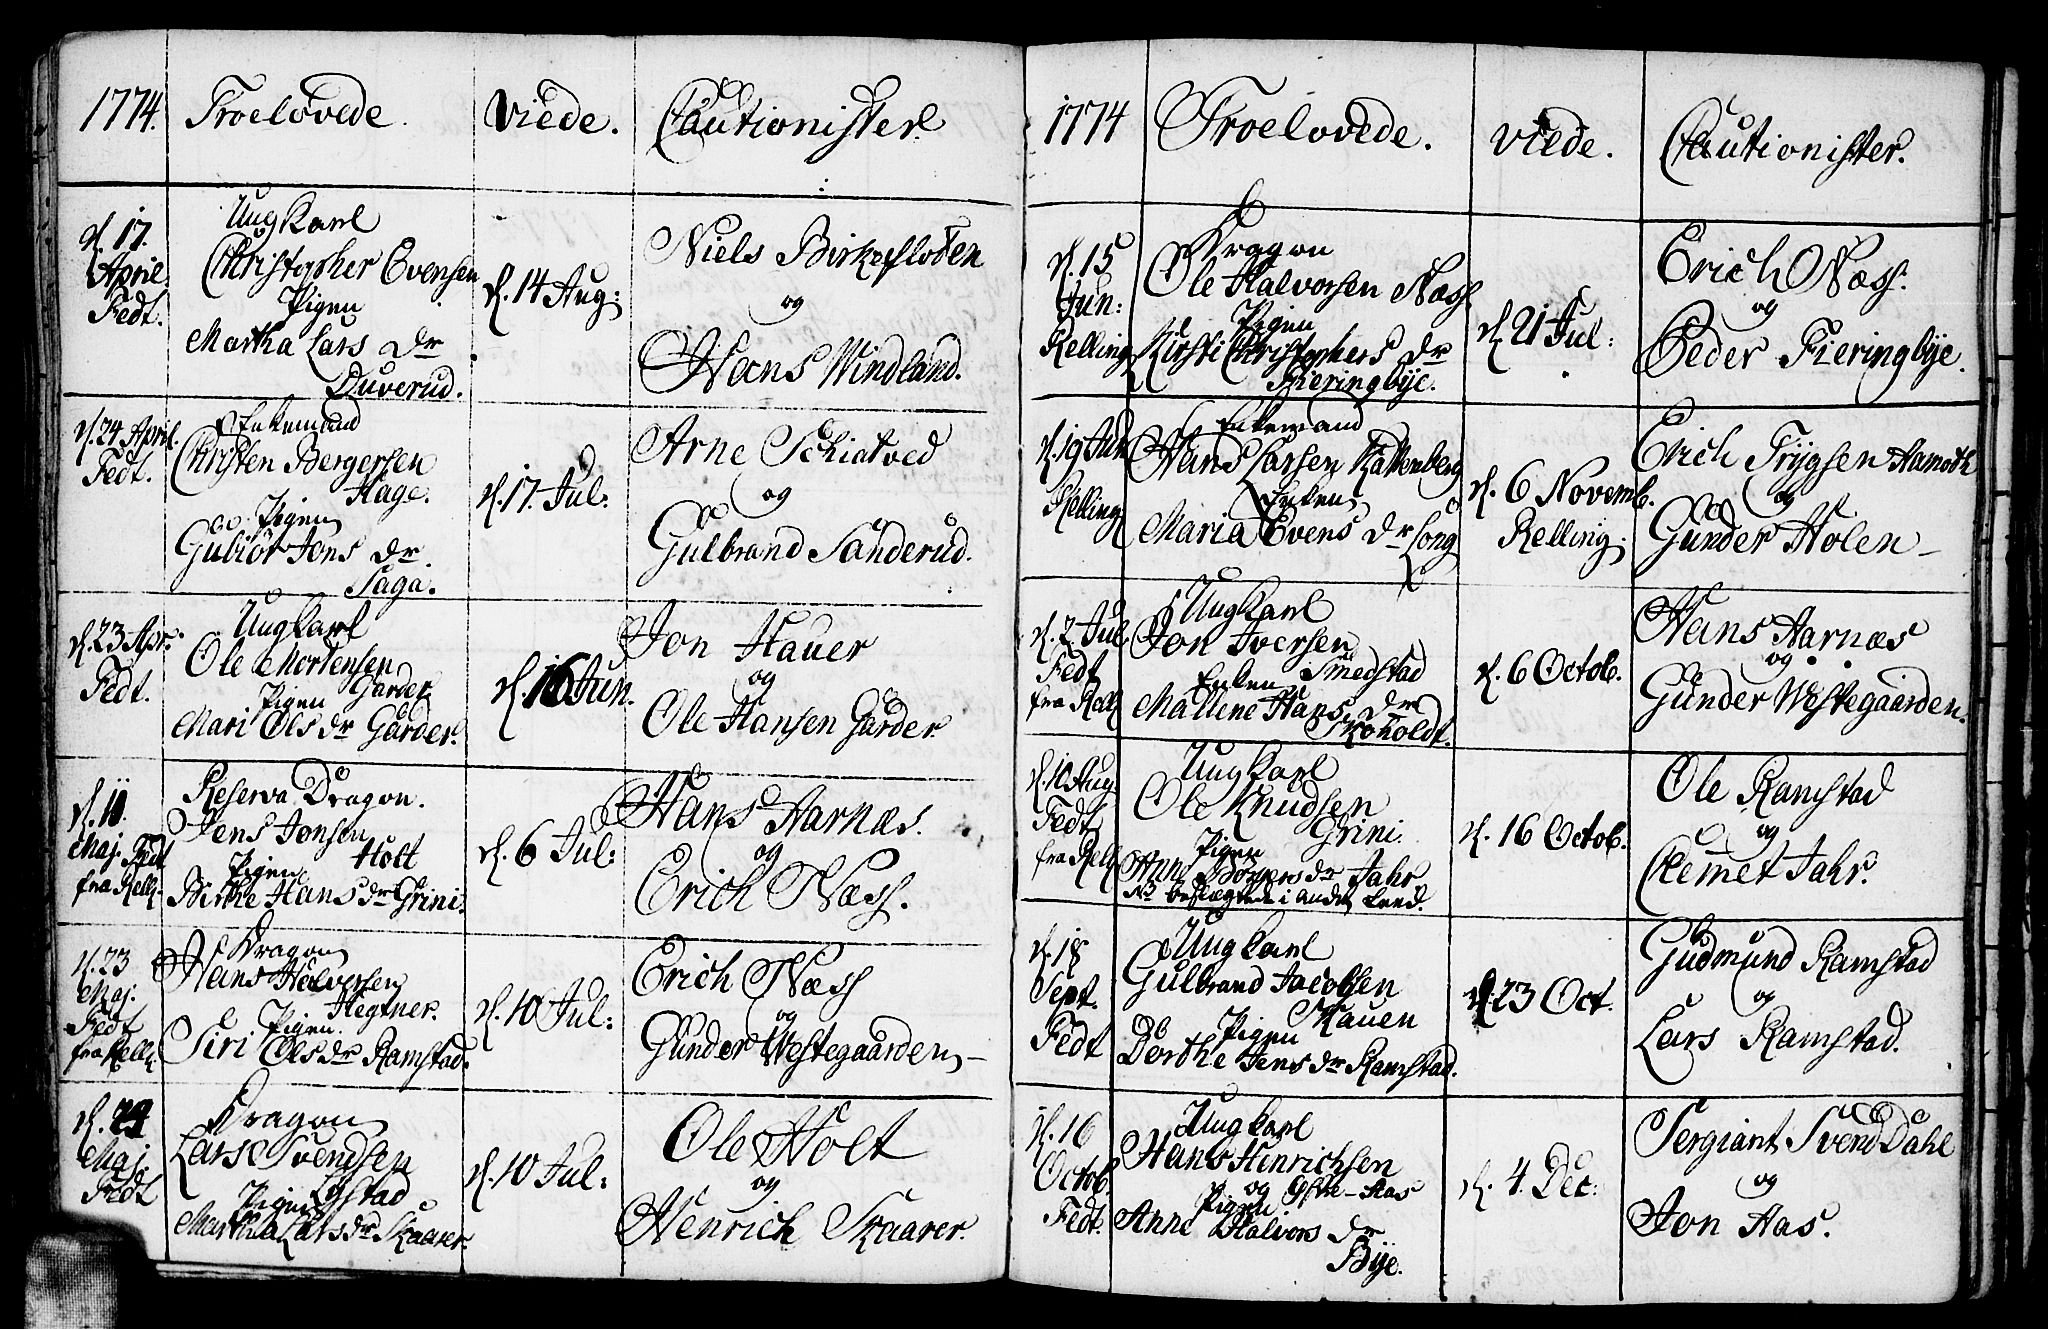 1774. Troelovede. Viede. Cautionister
d. 17. April Fedt.
Ung Karl
Christopher Evensen
Pigen
Martha Lars dr
Duverud.
d. 14 Aug:
Niels Birkefloden
og
Hans Windland.
d. 24 April. Fedt.
Enkemand
Christen Bergersen
Hage.
Pigen
Gubiør Jens dr.
Saga.
d. 17. Jul:
Arne Schiatved
og
Gulbrand Sanderud.
d. 23 Apr: Fedt.
Ung Karl
Ole Mortensen
Garder
Pigen
Mari Ols dr Garder.
d. 16 Jun.
Jon Hauer
og
Ole Hansen Garder
d. 11. Maj. Fedt fra Relli.
Reserva Dragon.
Jens Jonsen
Holt
Pigen
Birthe Hans dr Grini.
d. 6 Jul:
Hans Aarnæs.
og
Erich Næss.
d. 23 Maj. Fedt fra Relli.
Dragon
Hans Halversen
Hegtner.
Pigen.
Siri Ols dr Ramstad.
d. 10 Jul:
Erich Næss
og
Gunder Westegaarden
d. 24 Maj. Fedt
Dragon
Lars Svendsen
Løstad
Pigen
Martha Lars dr Skaarer.
d. 10 Jul:
Ole Holt
og
Henrich Skaarer.
1774 Troelovede. Viede. Cautionister.
d. 15 Jun: Relling
Dragon
Ole Halvorsen Næss
Pigen
Kirsti Christophers dr
Fieringbye.
d. 21 Jul:
Erich Næss.
og
Peder Fieringbye.
d. 19 Jun Relling
Enkemand
Hans Larsen Kattenberg
Enken
Maria Evens dr Long
d. 6 Novemb.
Relling.
Erich Trygsen Aamoth
og
Gunder Holen
d. 2 Jul. Fedt fra Rell
Ung Karl
Jon Iversen
Smedstad
Enken
Mallene Hans dr
Skoholdt.
d. 6 Octob.
Hans Aarnæs
og
Gunder Westegaarden.
d. 10 Aug. Fedt fra Rell
Ung Karl
Ole Knudsen
Grini.
Pigen
Anne Børgers dr Jahr
NB beslægtede i andet Leed.
d. 16 Octob.
Ole Ramstad
og
Clemet Jahr.
d. 18 Sept. Fedt
Ung Karl
Gulbrand Jacobsen
Skauen
Pigen
Dorthe Jens dr Ramstad.
d. 23 Oct.
Gudmund Ramstad
og
Lars Ramstad.
d. 16 Octob. Fedt.
Ung Karl
Hans Hinrichsen
og Østre-Aas
Pigen
Anne Halvors dr
Bye.
d. 4. Dec:
Sergiant Svend Dahl
og
Jon Aas.